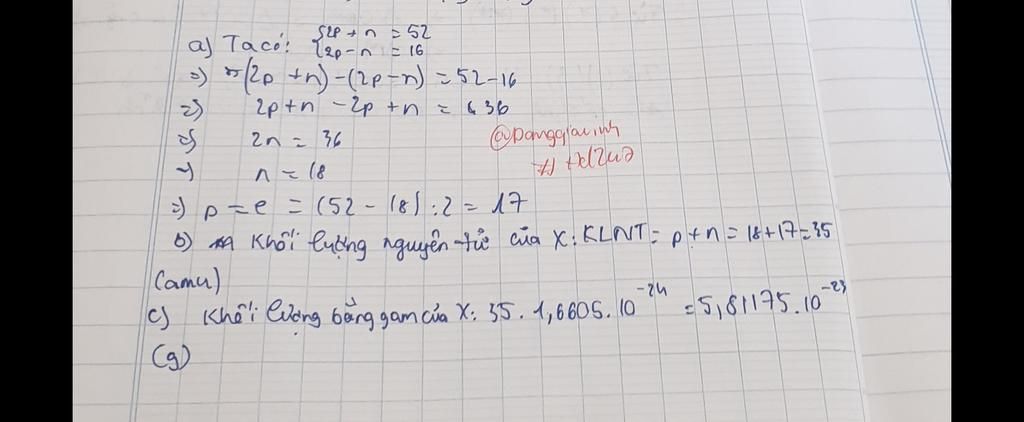 a) Ta có: {2p + n = 52
{2p - n = 16
=> (2p + n) - (2p - n) = 52 - 16
=> 2p + n - 2p + n = 36
=> 2n = 36
=> n = 18
=> p = e = (52 - 18) : 2 = 17
b) Khối lượng nguyên tử của X: KLNT = p + n = 18 + 17 = 35
(amu)
c) Khối lượng bằng gam của X: 35 . 1,6605 . 10^-24 = 5,81175 . 10^-23
(g)